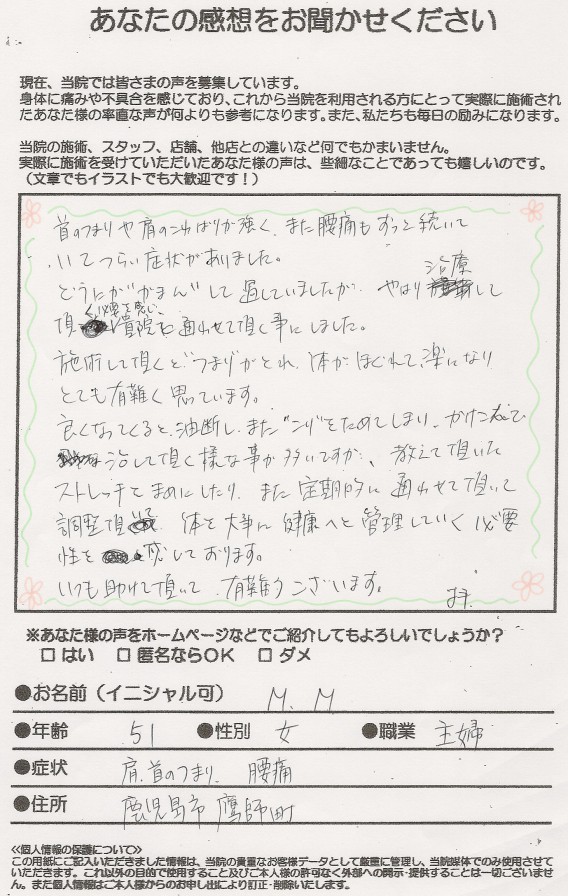 あなたの感想をお聞かせください
現在、当院では皆さまの声を募集しています。
身体に痛みや不具合を感じており、これから当院を利用される方にとって実際に施術され
たあなた様の率直な声が何よりも参考になります。また、私たちも毎日の励みになります。
当院の施術、スタッフ、店舗、他店との違いなど何でもかまいません。
実際に施術を受けていただいたあなた様の声は、些細なことであっても嬉しいのです。
（文章でもイラストでも大歓迎です！）
首のつまりや肩のこわばりが強く、また腰痛もずっと続いて
いてつらい症状がありました。
どうにか"がまん"して過していましたが、やはり治療して
頂く必要を感じ、貴院を通わせて頂く事にしました。
施術して頂くと"つまり"がとれ、体がほぐれて、楽になり
とても有難く思っています。
良くなってくると、油断し、また"こり"をためてしまい、かけ込んで
治して頂く様な事が多いですが、教えて頂いた
ストレッチをまめにしたり、また定期的に通わせて頂いて
調整頂き、体を大事に健康へと管理していく必要
性を感じております。
いつも助けて頂いて、有難うございます。
※あなた様の声をホームページなどでご紹介してもよろしいでしょうか？
□ はい □ 匿名ならOK □ ダメ
●お名前（イニシャル可） M. M
●年齢 51 ●性別 女 ●職業 主婦
●症状 肩、首のつまり、腰痛
●住所 鹿児島市 鷹師町
≪個人情報の保護について≫
この用紙にご記入いただきました情報は、当院の貴重なお客様データとして厳重に管理し、当院媒体でのみ使用させて
いただきます。これ以外の目的で使用すること及びご本人様の許可なく外部への開示・提供することは一切ございませ
ん。また個人情報はご本人様からのお申し出により訂正・削除いたします。